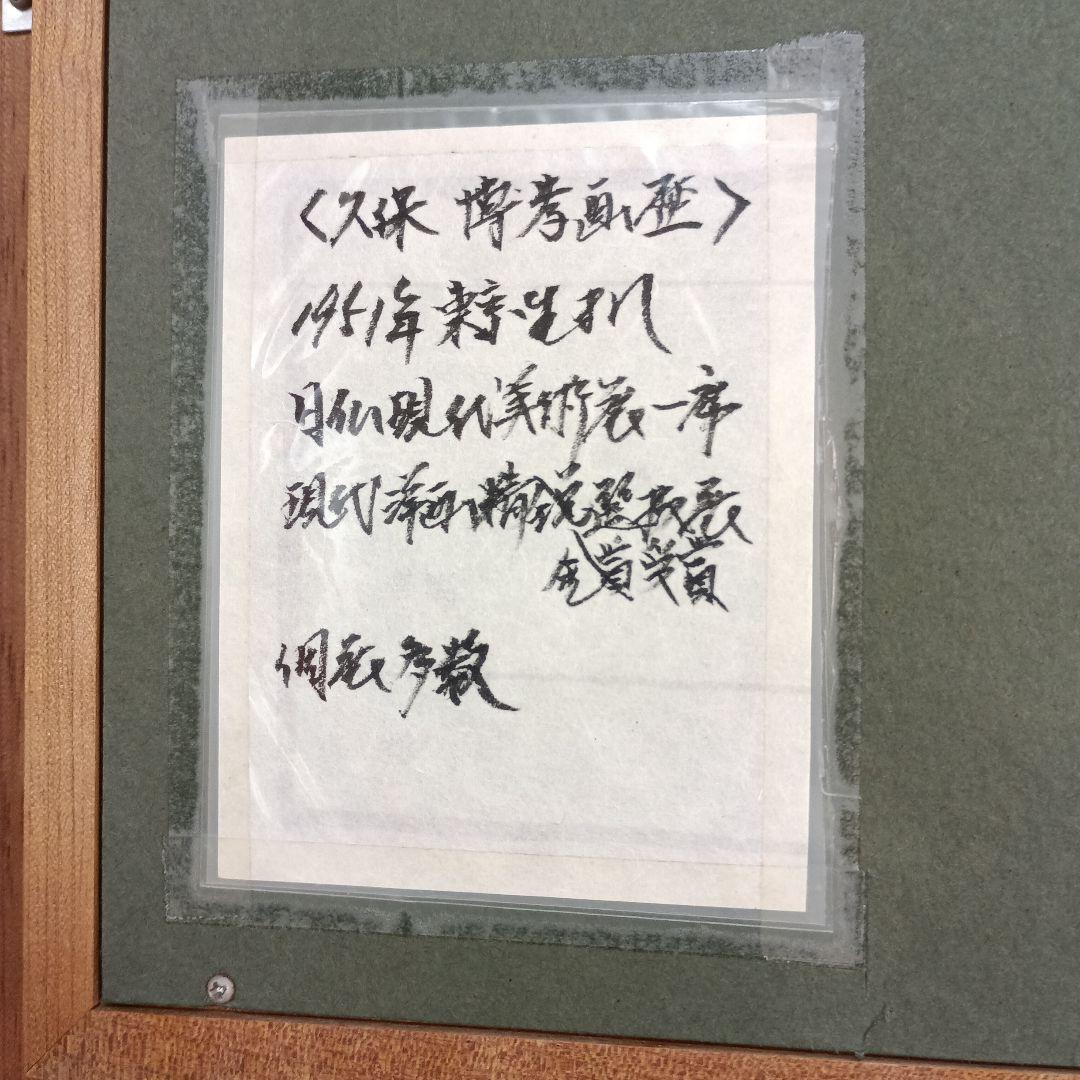 〈久保 博孝画歴〉
1951年 東京生まれ
日仏現代美術展一席
現代洋画精鋭選抜展
金賞受賞
個展多数